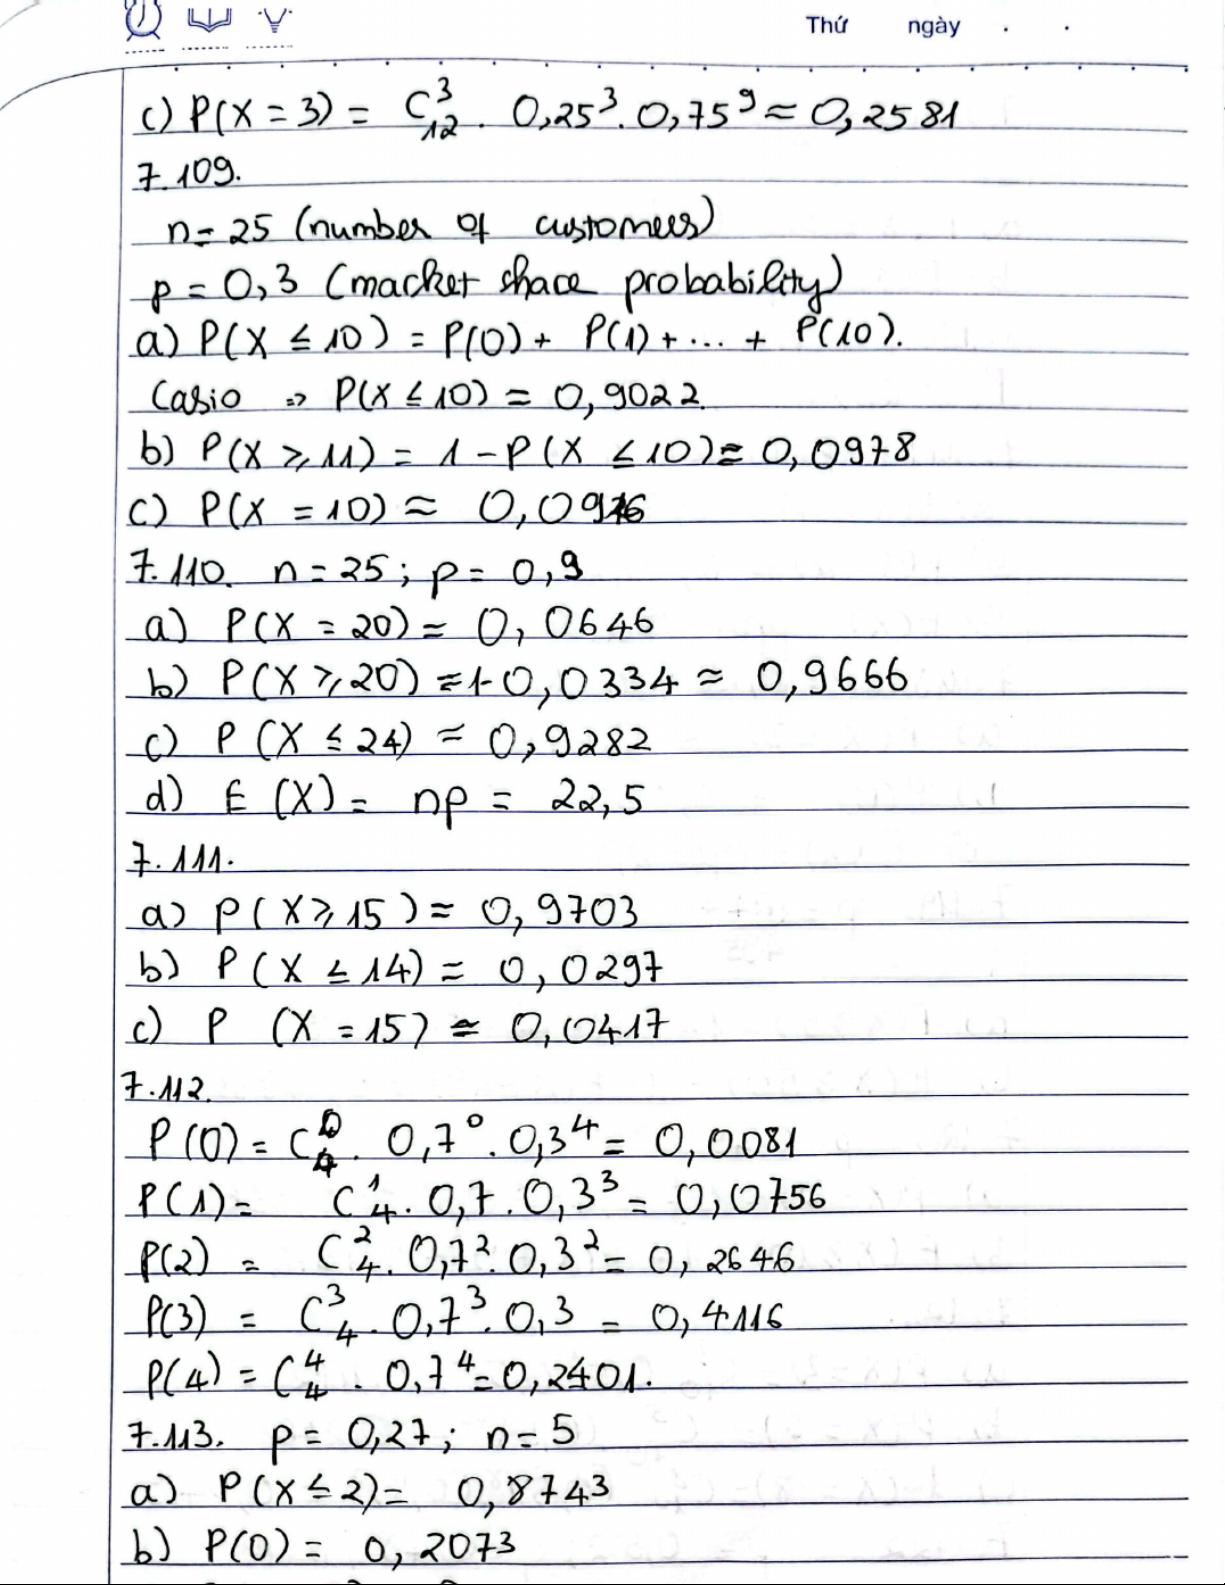 Thứ ngày . .
c) P(X = 3) = C³₁₂ . 0,25³ . 0,75⁹ ≈ 0,2581
7.109.
n = 25 (number of customers)
p = 0,3 (market share probability)
a) P(X ≤ 10) = P(0) + P(1) + ... + P(10).
Casio => P(X ≤ 10) = 0,9022.
b) P(X ≥ 11) = 1 - P(X ≤ 10) ≈ 0,0978
c) P(X = 10) ≈ 0,0916
7.110. n = 25 ; p = 0,9
a) P(X = 20) ≈ 0,0646
b) P(X ≥ 20) = 1 - 0,0334 ≈ 0,9666
c) P(X ≤ 24) ≈ 0,9282
d) E(X) = np = 22,5
7.111.
a) P(X ≥ 15) ≈ 0,9703
b) P(X ≤ 14) = 0,0297
c) P (X = 15) ≈ 0,0417
7.112.
P(0) = C⁰₄ . 0,7⁰ . 0,3⁴ = 0,0081
P(1) = C¹₄ . 0,7 . 0,3³ = 0,0756
P(2) = C²₄ . 0,7² . 0,3² = 0,2646
P(3) = C³₄ . 0,7³ . 0,3 = 0,4116
P(4) = C⁴₄ . 0,7⁴ = 0,2401.
7.113. p = 0,27 ; n = 5
a) P(X ≤ 2) = 0,8743
b) P(0) = 0,2073